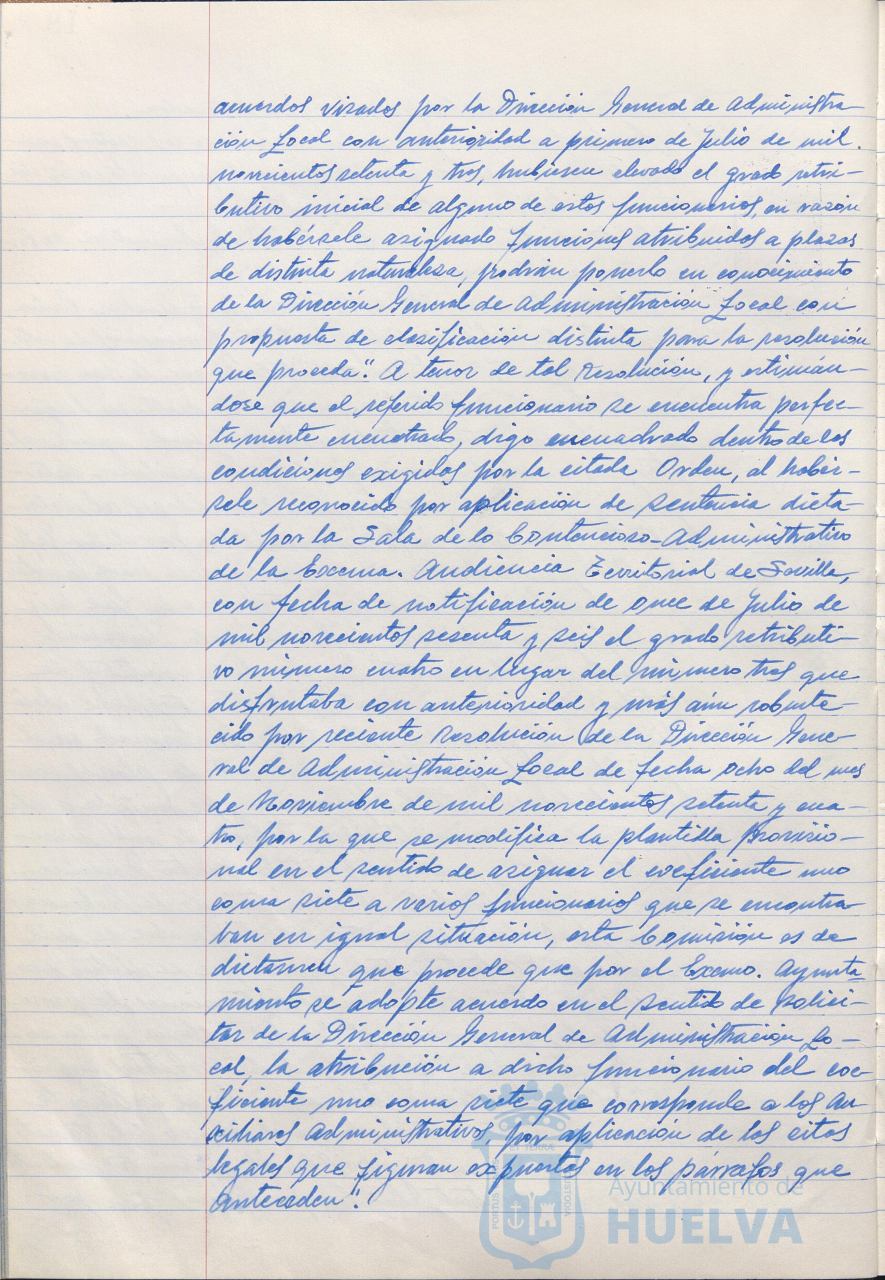 acuerdos visados por la Dirección General de Administra-
ción Local con anterioridad a primero de Julio de mil
novecientos setenta y tres, hubiesen elevado el grado retri-
butivo inicial de alguno de estos funcionarios, en razón
de habérsele asignado funciones atribuidas a plazas
de distinta naturaleza, podrán ponerlo en conocimiento
de la Dirección General de Administración Local con
propuesta de clasificación distinta para la resolución
que proceda". A tenor de tal Resolución, y estimán-
dose que el referido funcionario se encuentra perfec-
tamente encuatrado, digo encuadrado dentro de las
condiciones exigidas por la citada Orden, al habér-
sele reconocido por aplicación de sentencia dicta-
da por la Sala de lo Contencioso-Administrativo
de la Excma. Audiencia Territorial de Sevilla,
con fecha de notificación de once de Julio de
mil novecientos sesenta y seis el grado retributi-
vo número cuatro en lugar del número tres que
disfrutaba con anterioridad y más aún robuste-
cido por reciente Resolución de la Dirección Gene-
ral de Administración Local de fecha ocho del mes
de Noviembre de mil novecientos setenta y cua-
tro, por la que se modifica la plantilla Provisio-
nal en el sentido de asignar el coeficiente uno
coma siete a varios funcionarios que se encontra-
ban en igual situación, esta Comisión es de
dictamen que procede que por el Excmo. Ayunta-
miento se adopte acuerdo en el sentido de solici-
tar de la Dirección General de Administración Lo-
cal, la atribución a dicho funcionario del coe-
ficiente uno coma siete que corresponde a los Au-
xiliares Administrativos, por aplicación de las citas
legales que figuran expuestas en los párrafos que
anteceden".
Ayuntamiento de
HUELVA